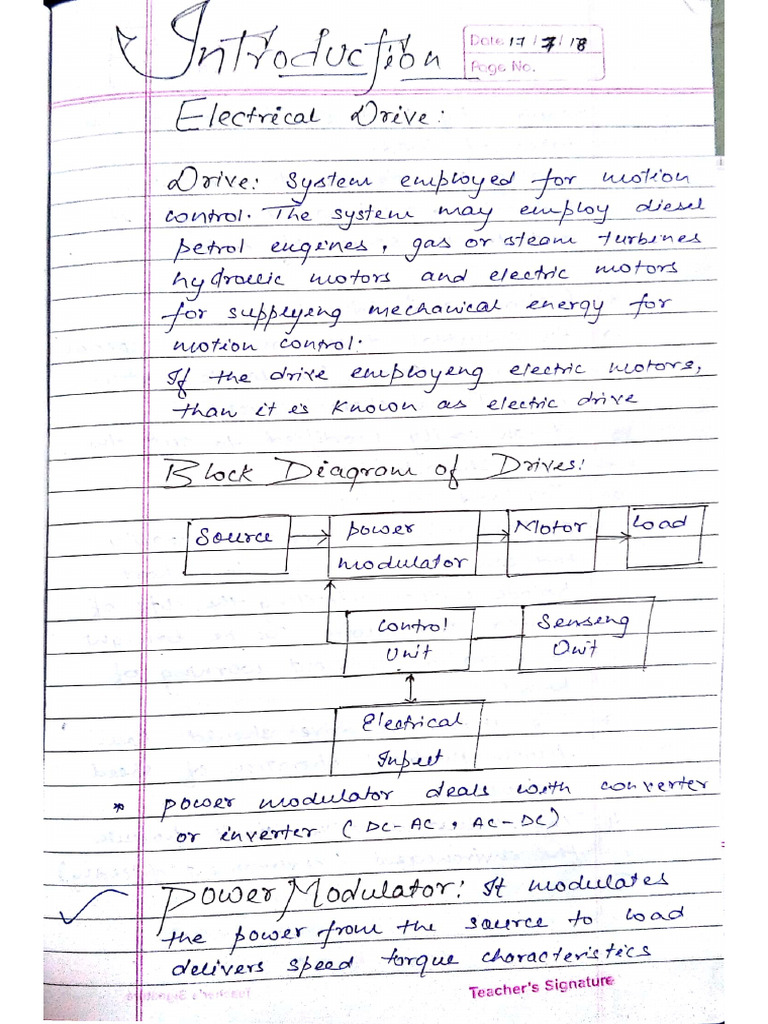 Introduction
Date 17 / 7 / 18
Page No.
Electrical Drive:
Drive: System employed for motion
control. The system may employ diesel
petrol engines, gas or steam turbines
hydrollic motors and electric motors
for supplying mechanical energy for
motion control.
If the drive employeng electric motors,
than it is known as electric drive
Block Diagram of Drives:
Source
power
modulator
Motor
Load
Control
Unit
Senseng
Unit
Electrical
Input
* power modulator deals with converter
or inverter (DC-AC, AC-DC)
Power Modulator: It modulates
the power from the source to load
delivers speed torque characteristics
Teacher's Signature